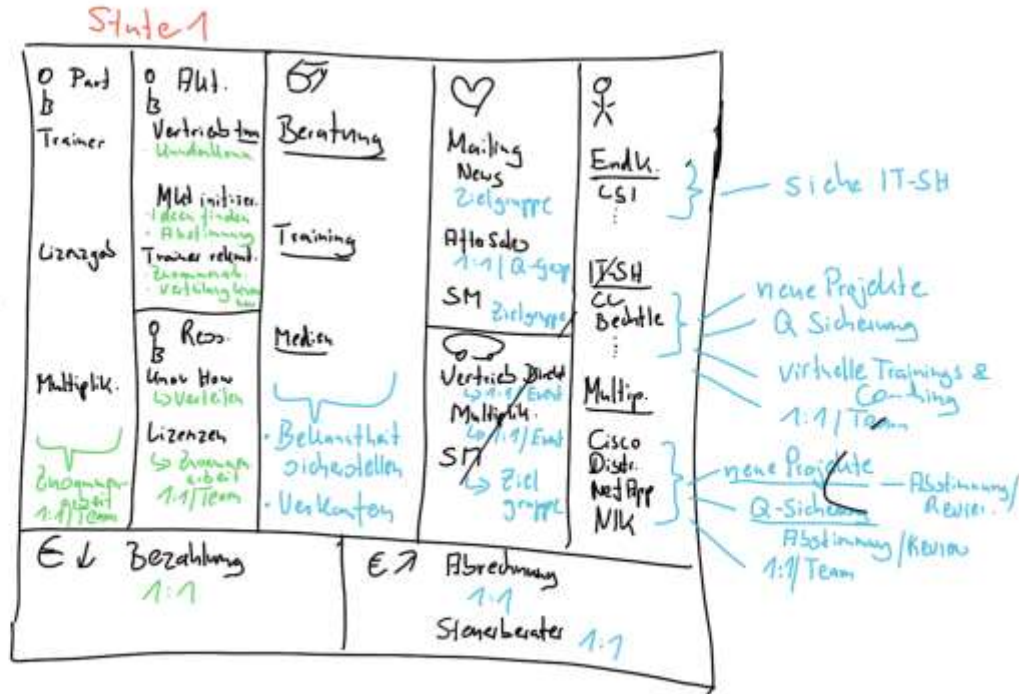 Stufe 1
Part
Trainer
Lizenzgeb
Multiplik.
Zusammen
arbeit
1:1/Team
Akt.
Vertrieb
Mkt initiier.
- Ideen finden
- Abstimmung
Trainer rekrut.
Ress.
Know How
↳ Verteilen
Lizenzen
↳ Zusammen
arbeit
1:1/Team
Beratung
Training
Medien
- Bekanntheit
sicherstellen
- Verkaufen
Mailing
News
Zielgruppe
After Sales
1:1/Q-Gesp
SM Zielgruppe
Vertrieb Direkt
↳ 1:1/Event
Multiplik.
↳ 1:1/Event
SM
↳ Ziel
gruppe
EndK.
CSI
siehe IT-SH
IT-SH
CC
Bechtle
neue Projekte
Q Sicherung
virtuelle Trainings &
Coaching
1:1/Team
Multip.
Cisco
Distr.
NetApp
NIK
neue Projekte — Abstimmung/
Review.
Q-Sicherung
Abstimmung/Review
1:1/Team
€ ↓ Bezahlung
1:1
€ ↗ Abrechnung
1:1
Steuerberater 1:1